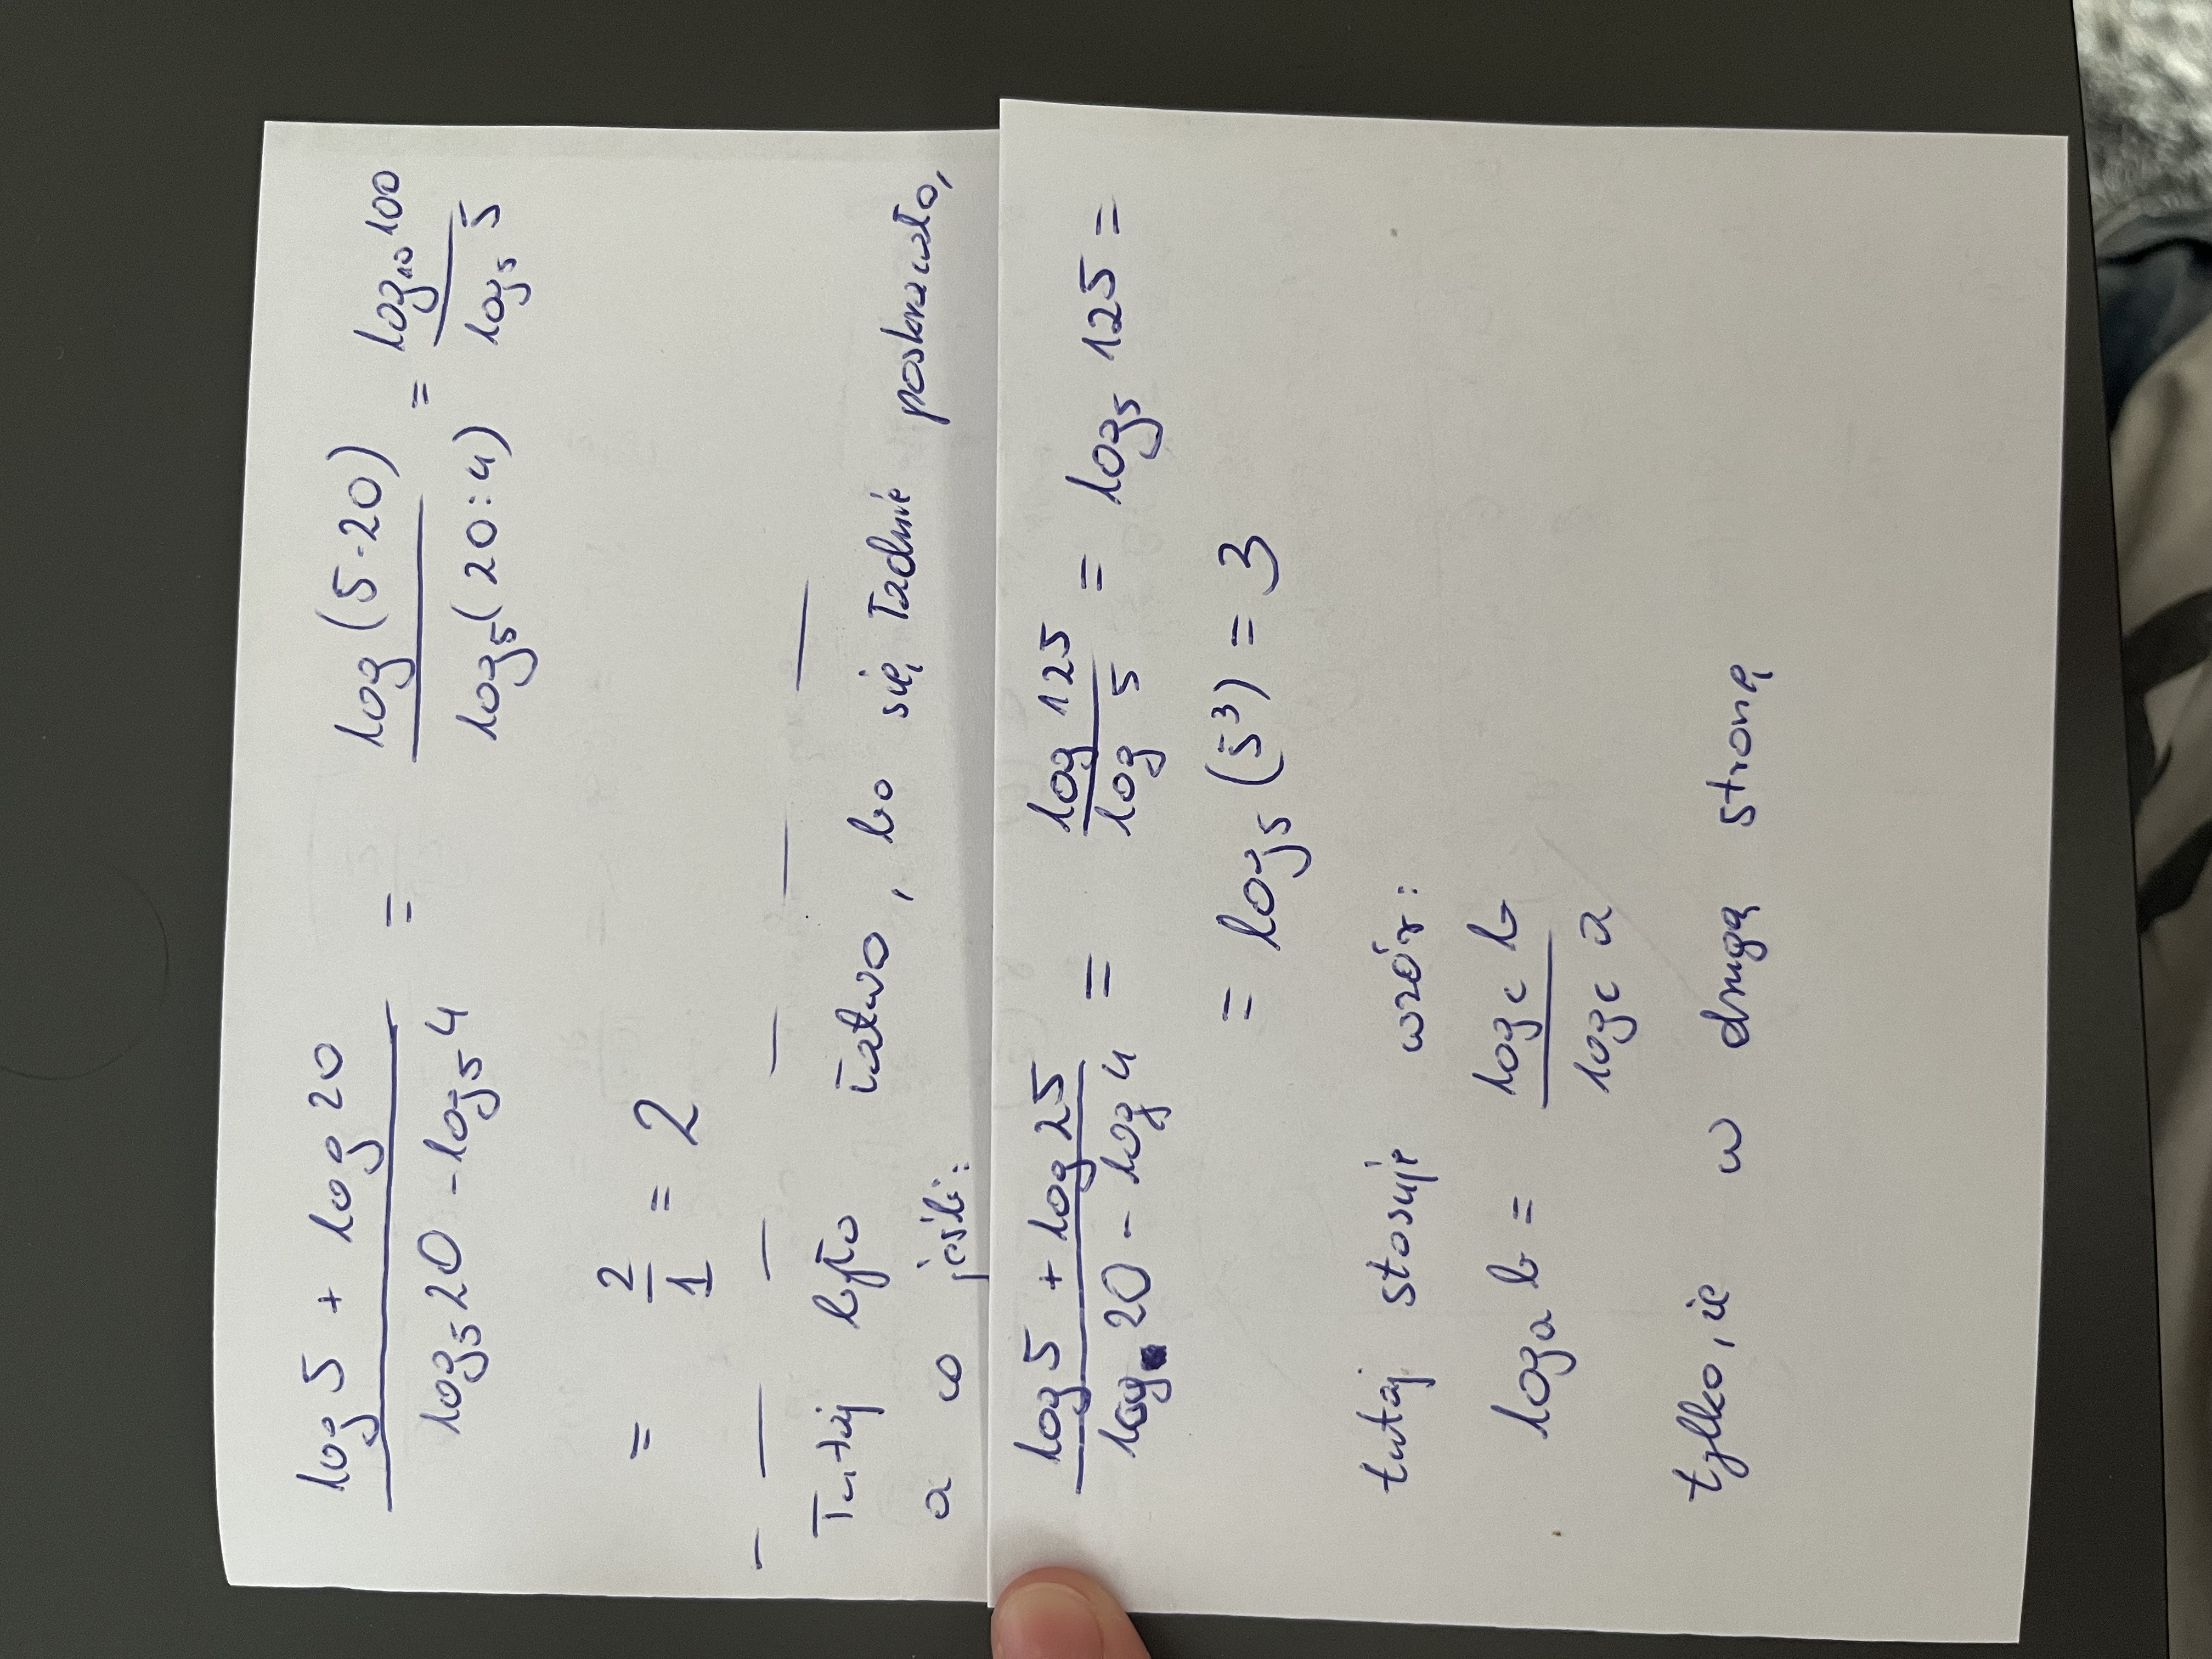 log 5 + log 20 / log₅ 20 - log₅ 4 = log (5·20) / log₅ (20:4) = log₁₀ 100 / log₅ 5
= 2/1 = 2
Tutaj było łatwo, bo się ładnie poskracało,
a co jeśli:
log 5 + log 25 / log 20 - log 4 = log 125 / log 5 = log₅ 125 =
= log₅ (5³) = 3
tutaj stosuje wzór:
logₐ b = log_c b / log_c a
tylko, że w drugą stronę